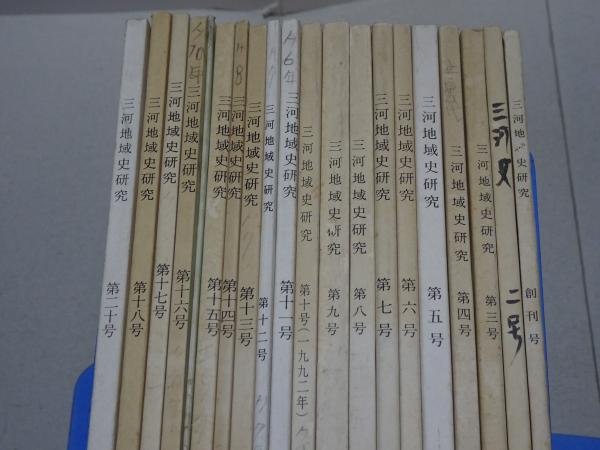 三河地域史研究 創刊号
三河史 二号
三河地域史研究 第三号
三河地域史研究 第四号
三河地域史研究 第五号
三河地域史研究 第六号
三河地域史研究 第七号
三河地域史研究 第八号
三河地域史研究 第九号
三河地域史研究 第十号(一九九二年)
H6年 三河地域史研究 第十一号
三河地域史研究 第十二号
三河地域史研究 第十三号
H8 三河地域史研究 第十四号
三河地域史研究 第十五号
H10年 三河地域史研究 第十六号
三河地域史研究 第十七号
三河地域史研究 第十八号
三河地域史研究 第二十号